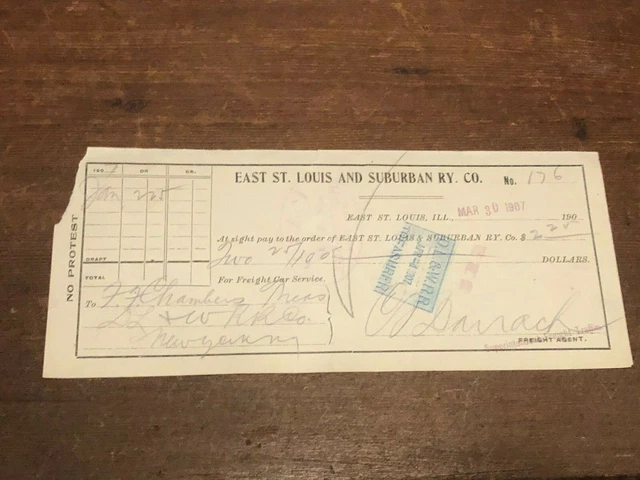 EAST ST. LOUIS AND SUBURBAN RY. CO. No. 176
EAST ST. LOUIS, ILL., MAR 30 1907 190
At sight pay to the order of EAST ST. LOUIS & SUBURBAN RY. Co. $ 2 25
Two 25/100 DOLLARS.
For Freight Car Service.
To F J Chambers Treas
D L & W R R Co.
New York NY
FREIGHT AGENT.
NO PROTEST
190 DR CR.
Jan 2 25
DRAFT
TOTAL
D. L. & W. R. R.
TREASURER